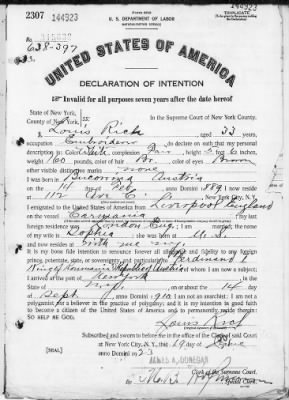 2307 144923
Form 2202
U. S. DEPARTMENT OF LABOR
NATURALIZATION SERVICE
TRIPLICATE
No.
638-397
UNITED STATES OF AMERICA
DECLARATION OF INTENTION
Invalid for all purposes seven years after the date hereof
State of New York,
County of New York, ss: In the Supreme Court of New York County.
I, Louis Rick aged 33 years,
occupation Embroiderer do declare on oath that my personal
description is: Color White, complexion height 5 feet 6 inches,
weight 160 pounds, color of hair Br. color of eyes Brown
other visible distinctive marks none
I was born in Bucovina Austria
on the 14 day of Feb anno Domini 1889; I now reside
at 112 Ave C. New York City, N. Y.
I emigrated to the United States of America from Liverpool England
on the vessel Carmania; my last
foreign residence was London Eng.; I am married; the name
of my wife is Sophia; she was born at U.S.
and now resides at with me
It is my bona fide intention to renounce forever all allegiance and fidelity to any foreign
prince, potentate, state, or sovereignty, and particularly to Ferdinand I
of whom I am now a subject;
I arrived at the port of New York, in the
State of N.Y., on or about the 14 day
of Sept, anno Domini 1910; I am not an anarchist; I am not a
polygamist nor a believer in the practice of polygamy; and it is my intention in good faith
to become a citizen of the United States of America and to permanently reside therein:
SO HELP ME GOD.
Louis Rick
Subscribed and sworn to before me in the office of the Clerk of said Court
at New York City, N. Y., this 19 day of
[SEAL] anno Domini 1923
JAMES A. DONEGAN
Clerk of the Supreme Court.
By Special Clerk.